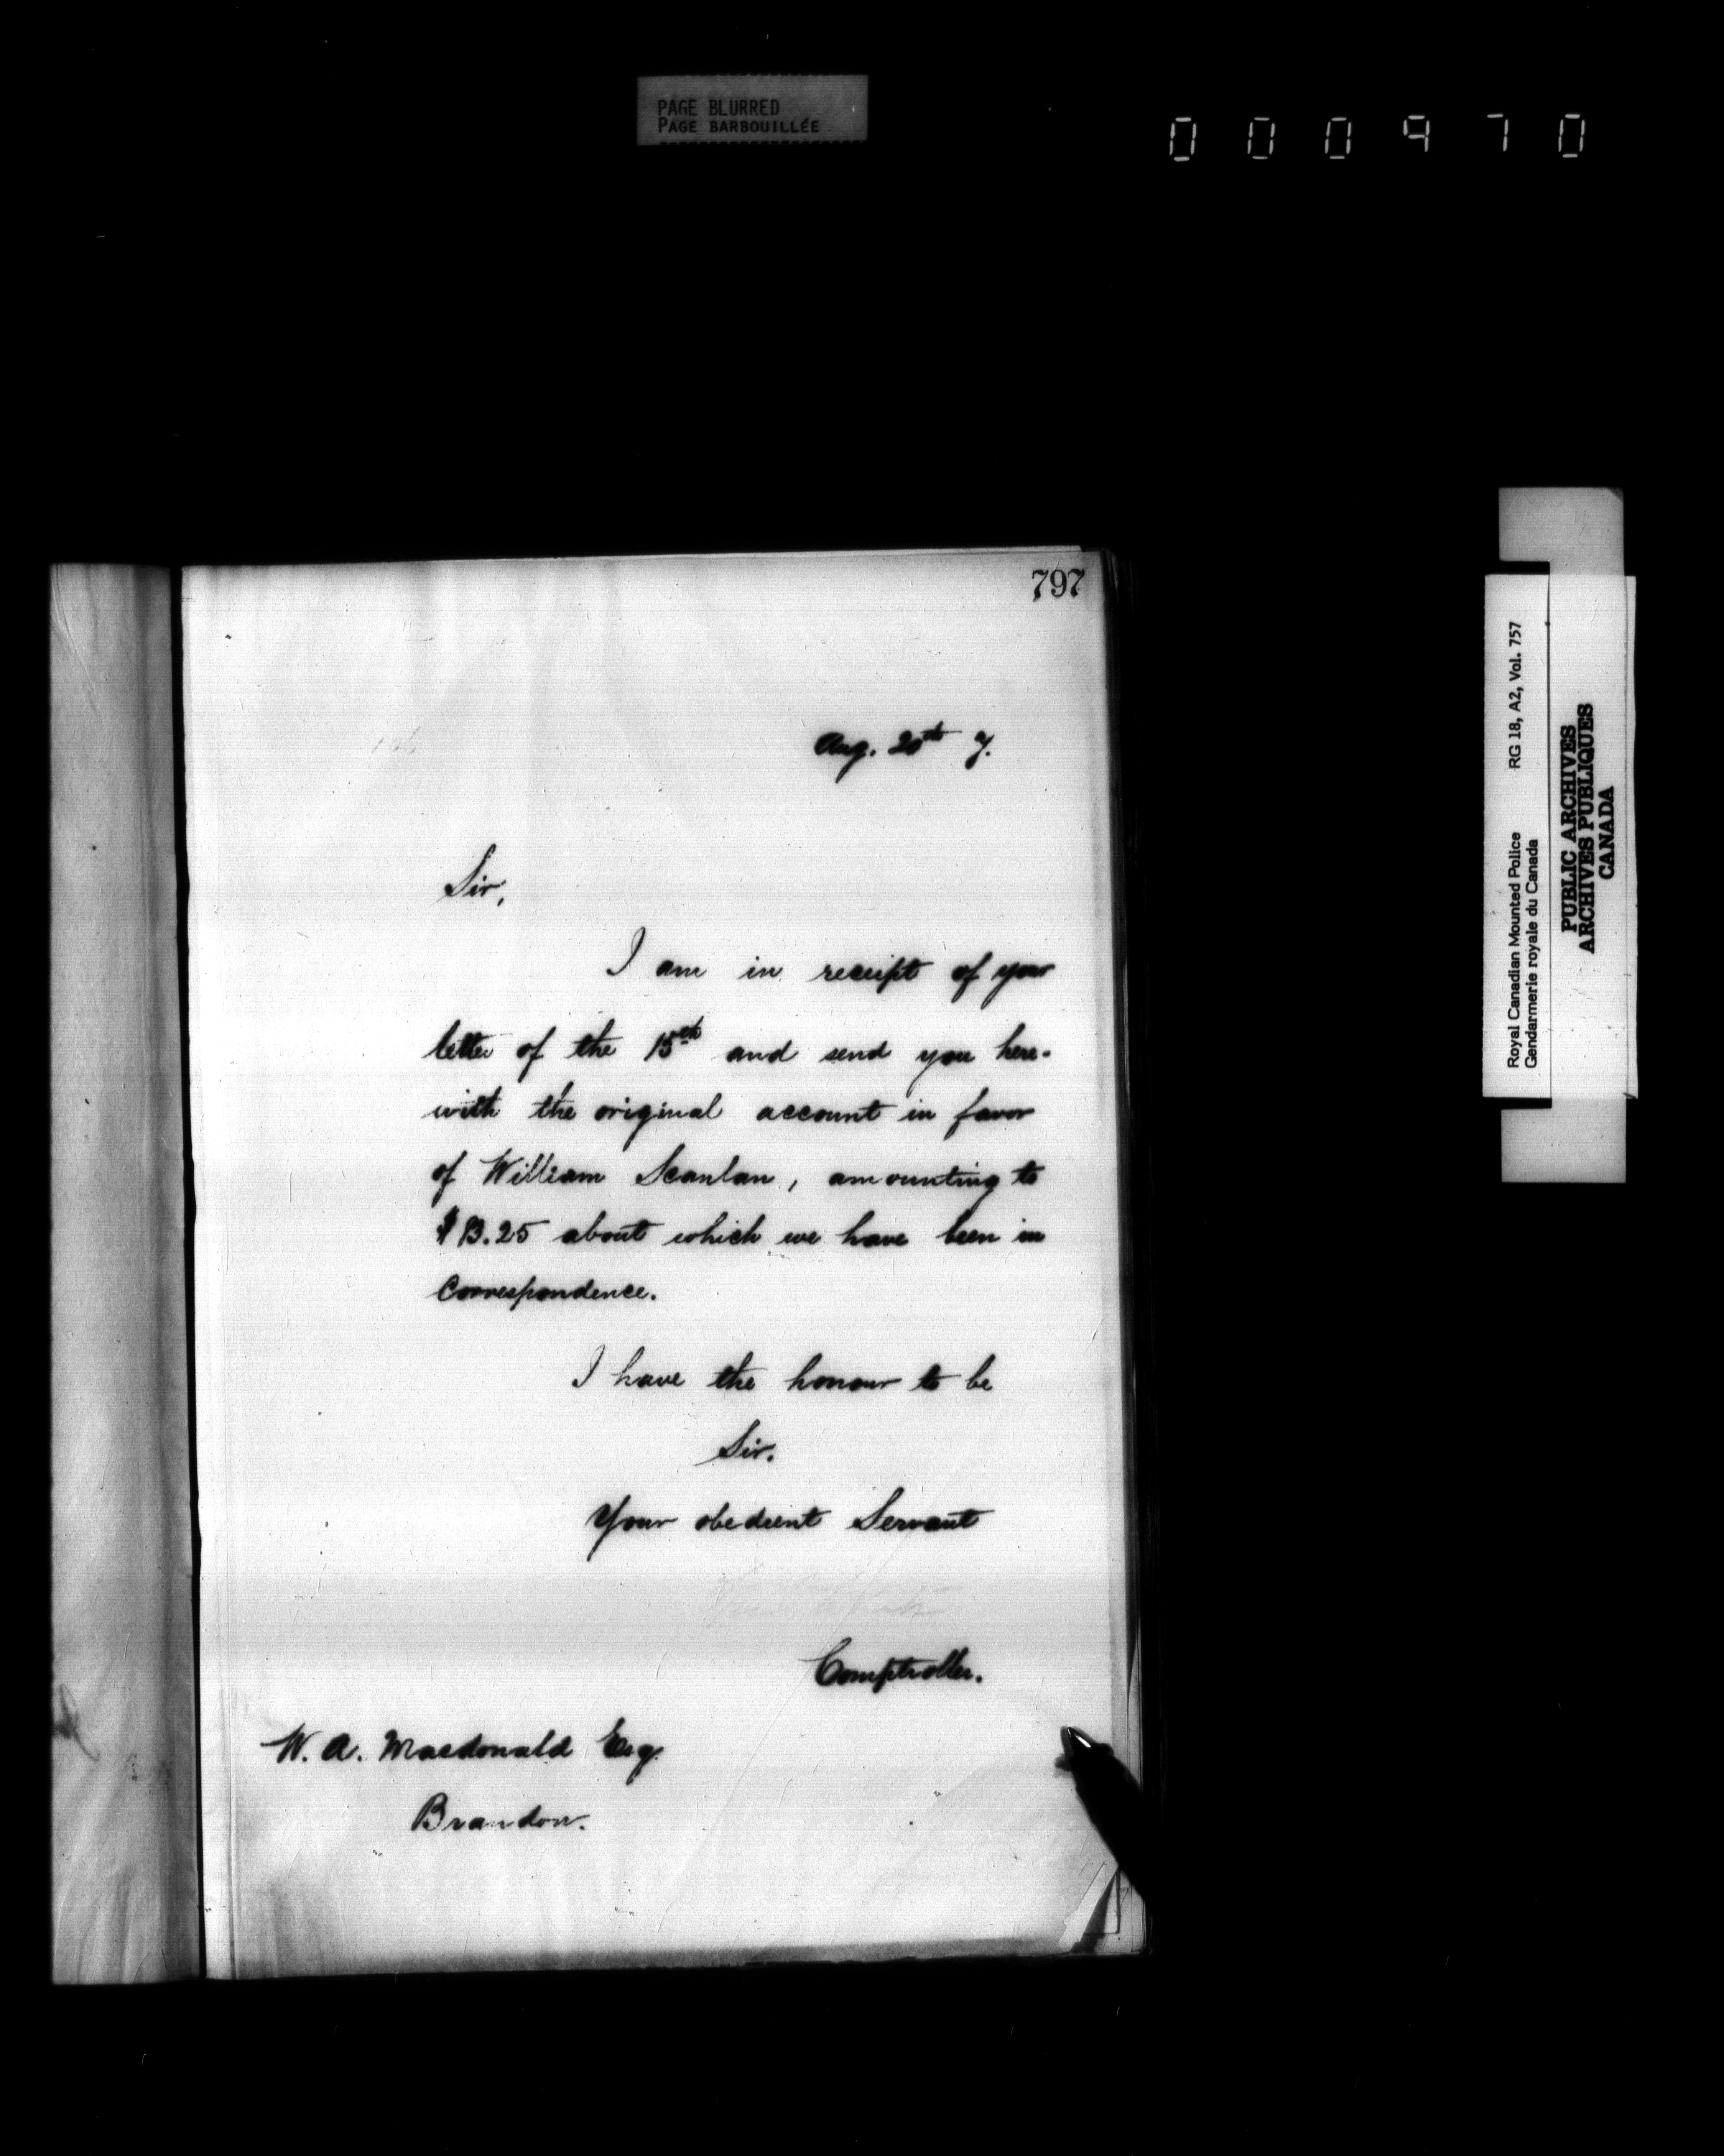 PAGE BLURRED
PAGE BARBOUILLÉE
000970
797
Aug. 20th 7.
Sir,
I am in receipt of your
letter of the 15th and send you here-
with the original account in favor
of William Scanlan, amounting to
$13.25 about which we have been in
correspondence.
I have the honour to be
Sir.
Your obedient Servant
Comptroller.
W. A. Macdonald Esq.
Brandon.
Royal Canadian Mounted Police RG 18, A2, Vol. 757
Gendarmerie royale du Canada
PUBLIC ARCHIVES
ARCHIVES PUBLIQUES
CANADA